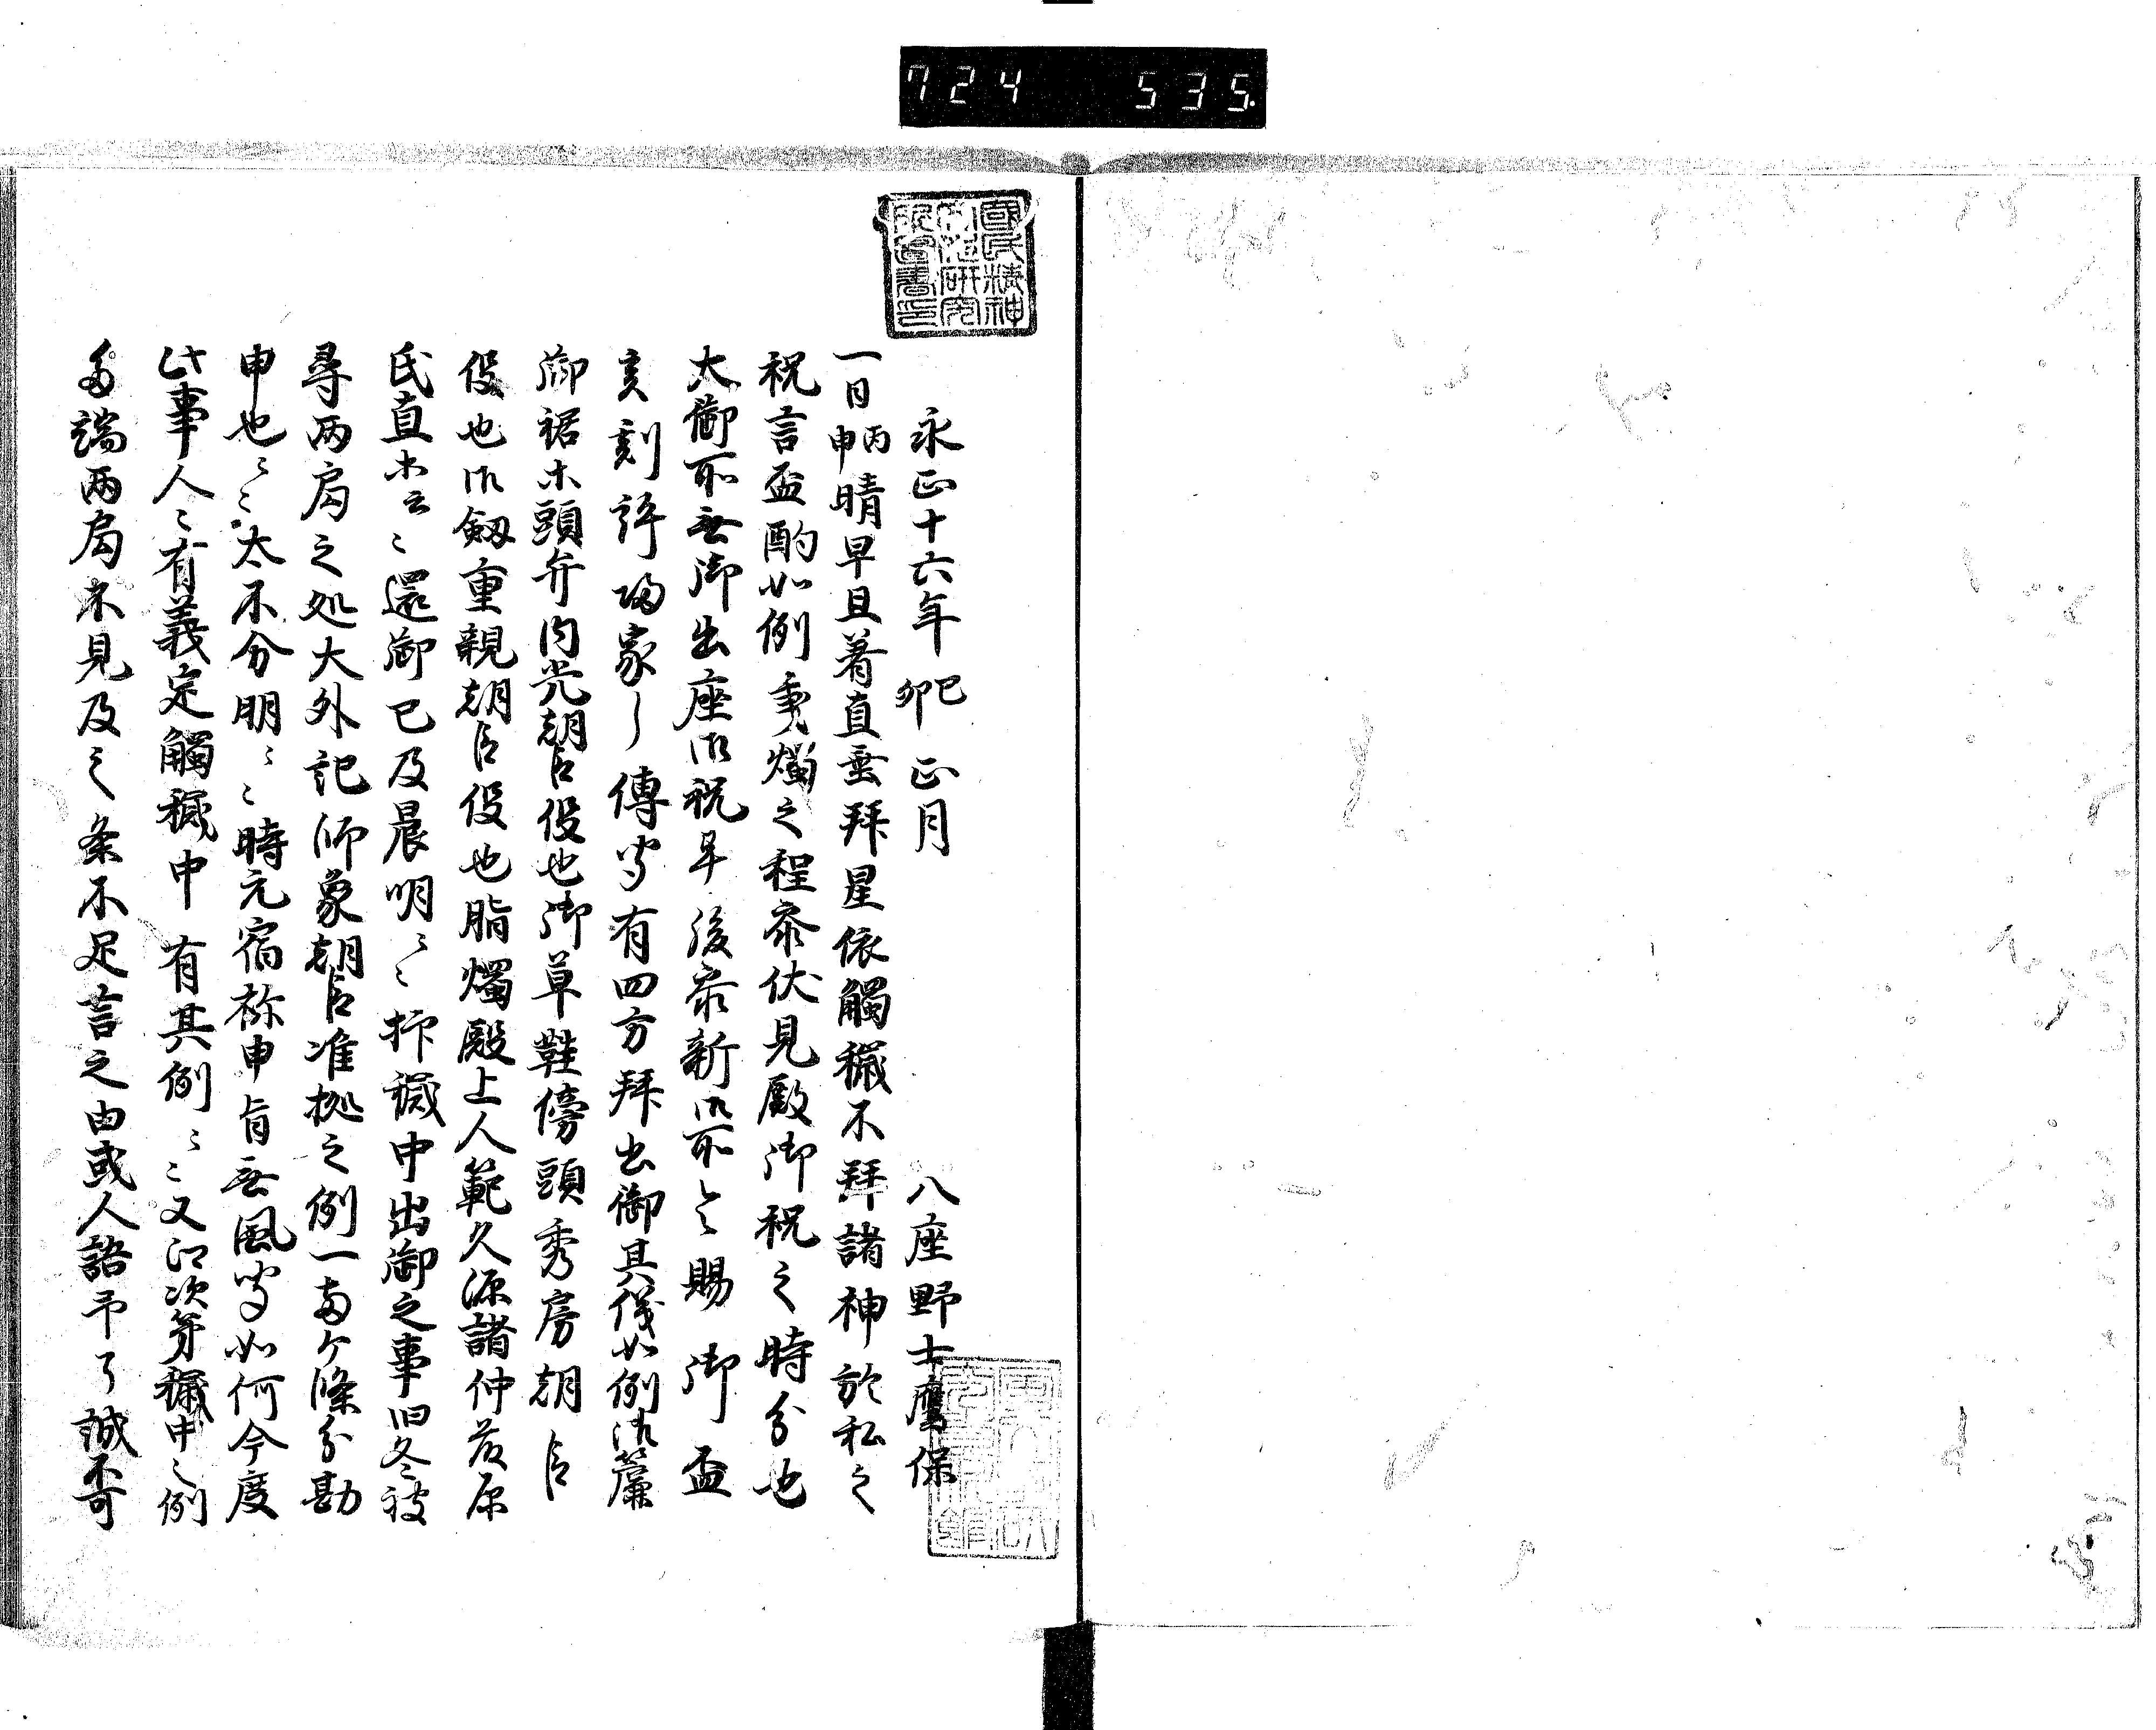 724 535
國民精神文化研究所圖書印
永正十六年己卯正月 八座野士鷹保
一日丙申晴早旦着直垂拜星依觸穢不拜諸神於私之
祝言盃酌如例秉燭之程参伏見殿御祝之時分也
大御所無御出座御祝早後参新御所令賜御盃
亥刻許帰家了傳聞有四方拜出御其儀如例御簾
御裾等頭弁内光朝臣役也御草鞋傍頭秀房朝臣
役也御劔重親朝臣役也脂燭殿上人範久源諸仲藤原
氏直等云々還御已及晨明云々抑穢中出御之事旧冬被
尋両局之処大外記師象朝臣准拠之例一両ケ條分勘
申也云々太不分明云々時元宿祢申旨無風聞如何今度
此事人々有義定觸穢中有其例云々又江次第穢中之例
多端両局不見及之条不足言之由或人語予了誠不可